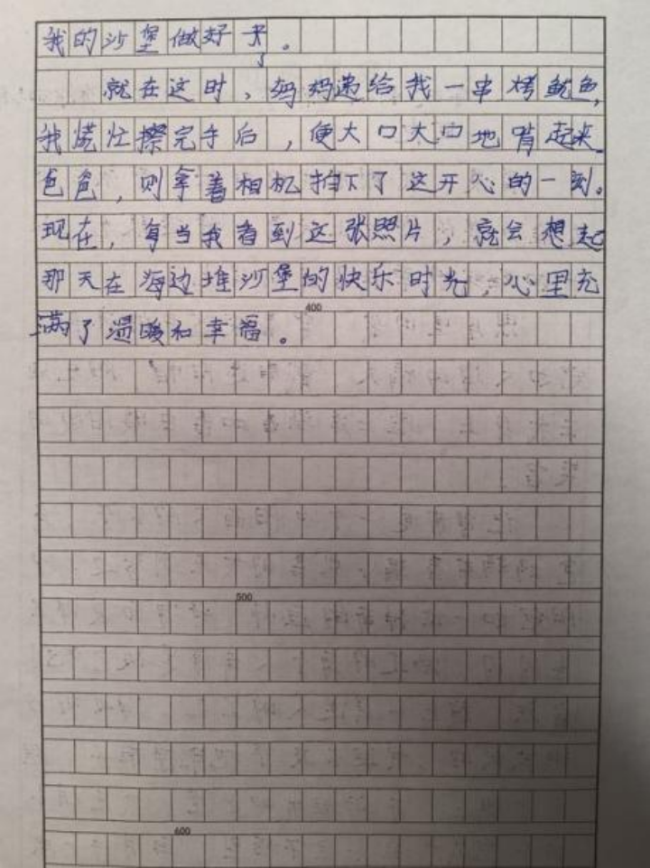 我的沙堡做好了。
就在这时，妈妈递给我一串烤鱿鱼，
我慌忙擦完手后，便大口大口地啃起来。
爸爸，则拿着相机拍下了这开心的一刻。
现在，每当我看到这张照片，就会想起
那天在海边堆沙堡的快乐时光，心里充
400
满了温暖和幸福。
500
600